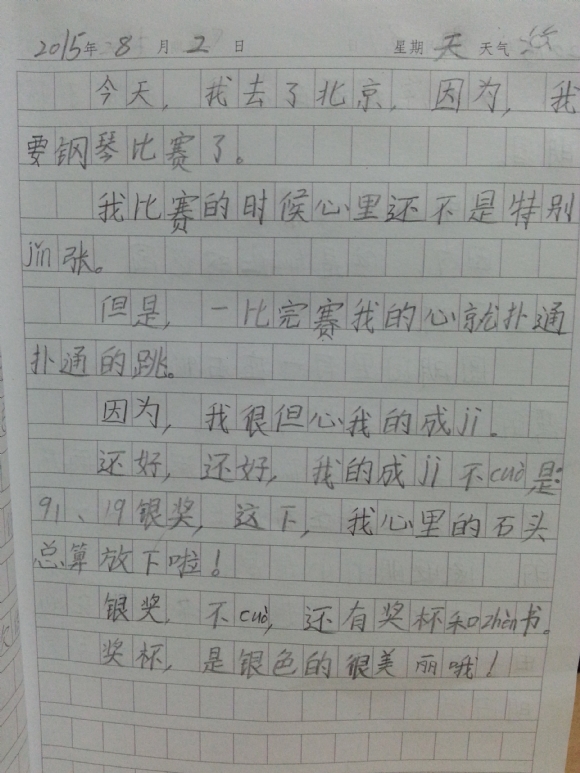 2015年8月2日 星期天 天气
今天，我去了北京，因为，我
要钢琴比赛了。
我比赛的时候心里还不是特别
jǐn张。
但是，一比完赛我的心就扑通
扑通的跳。
因为，我很但心我的成jì。
还好，还好，我的成jì不cuò，是
91、19银奖，这下，我心里的石头
总算放下啦！
银奖，不cuò，还有奖杯和zhèn书。
奖杯，是银色的很美丽哦！